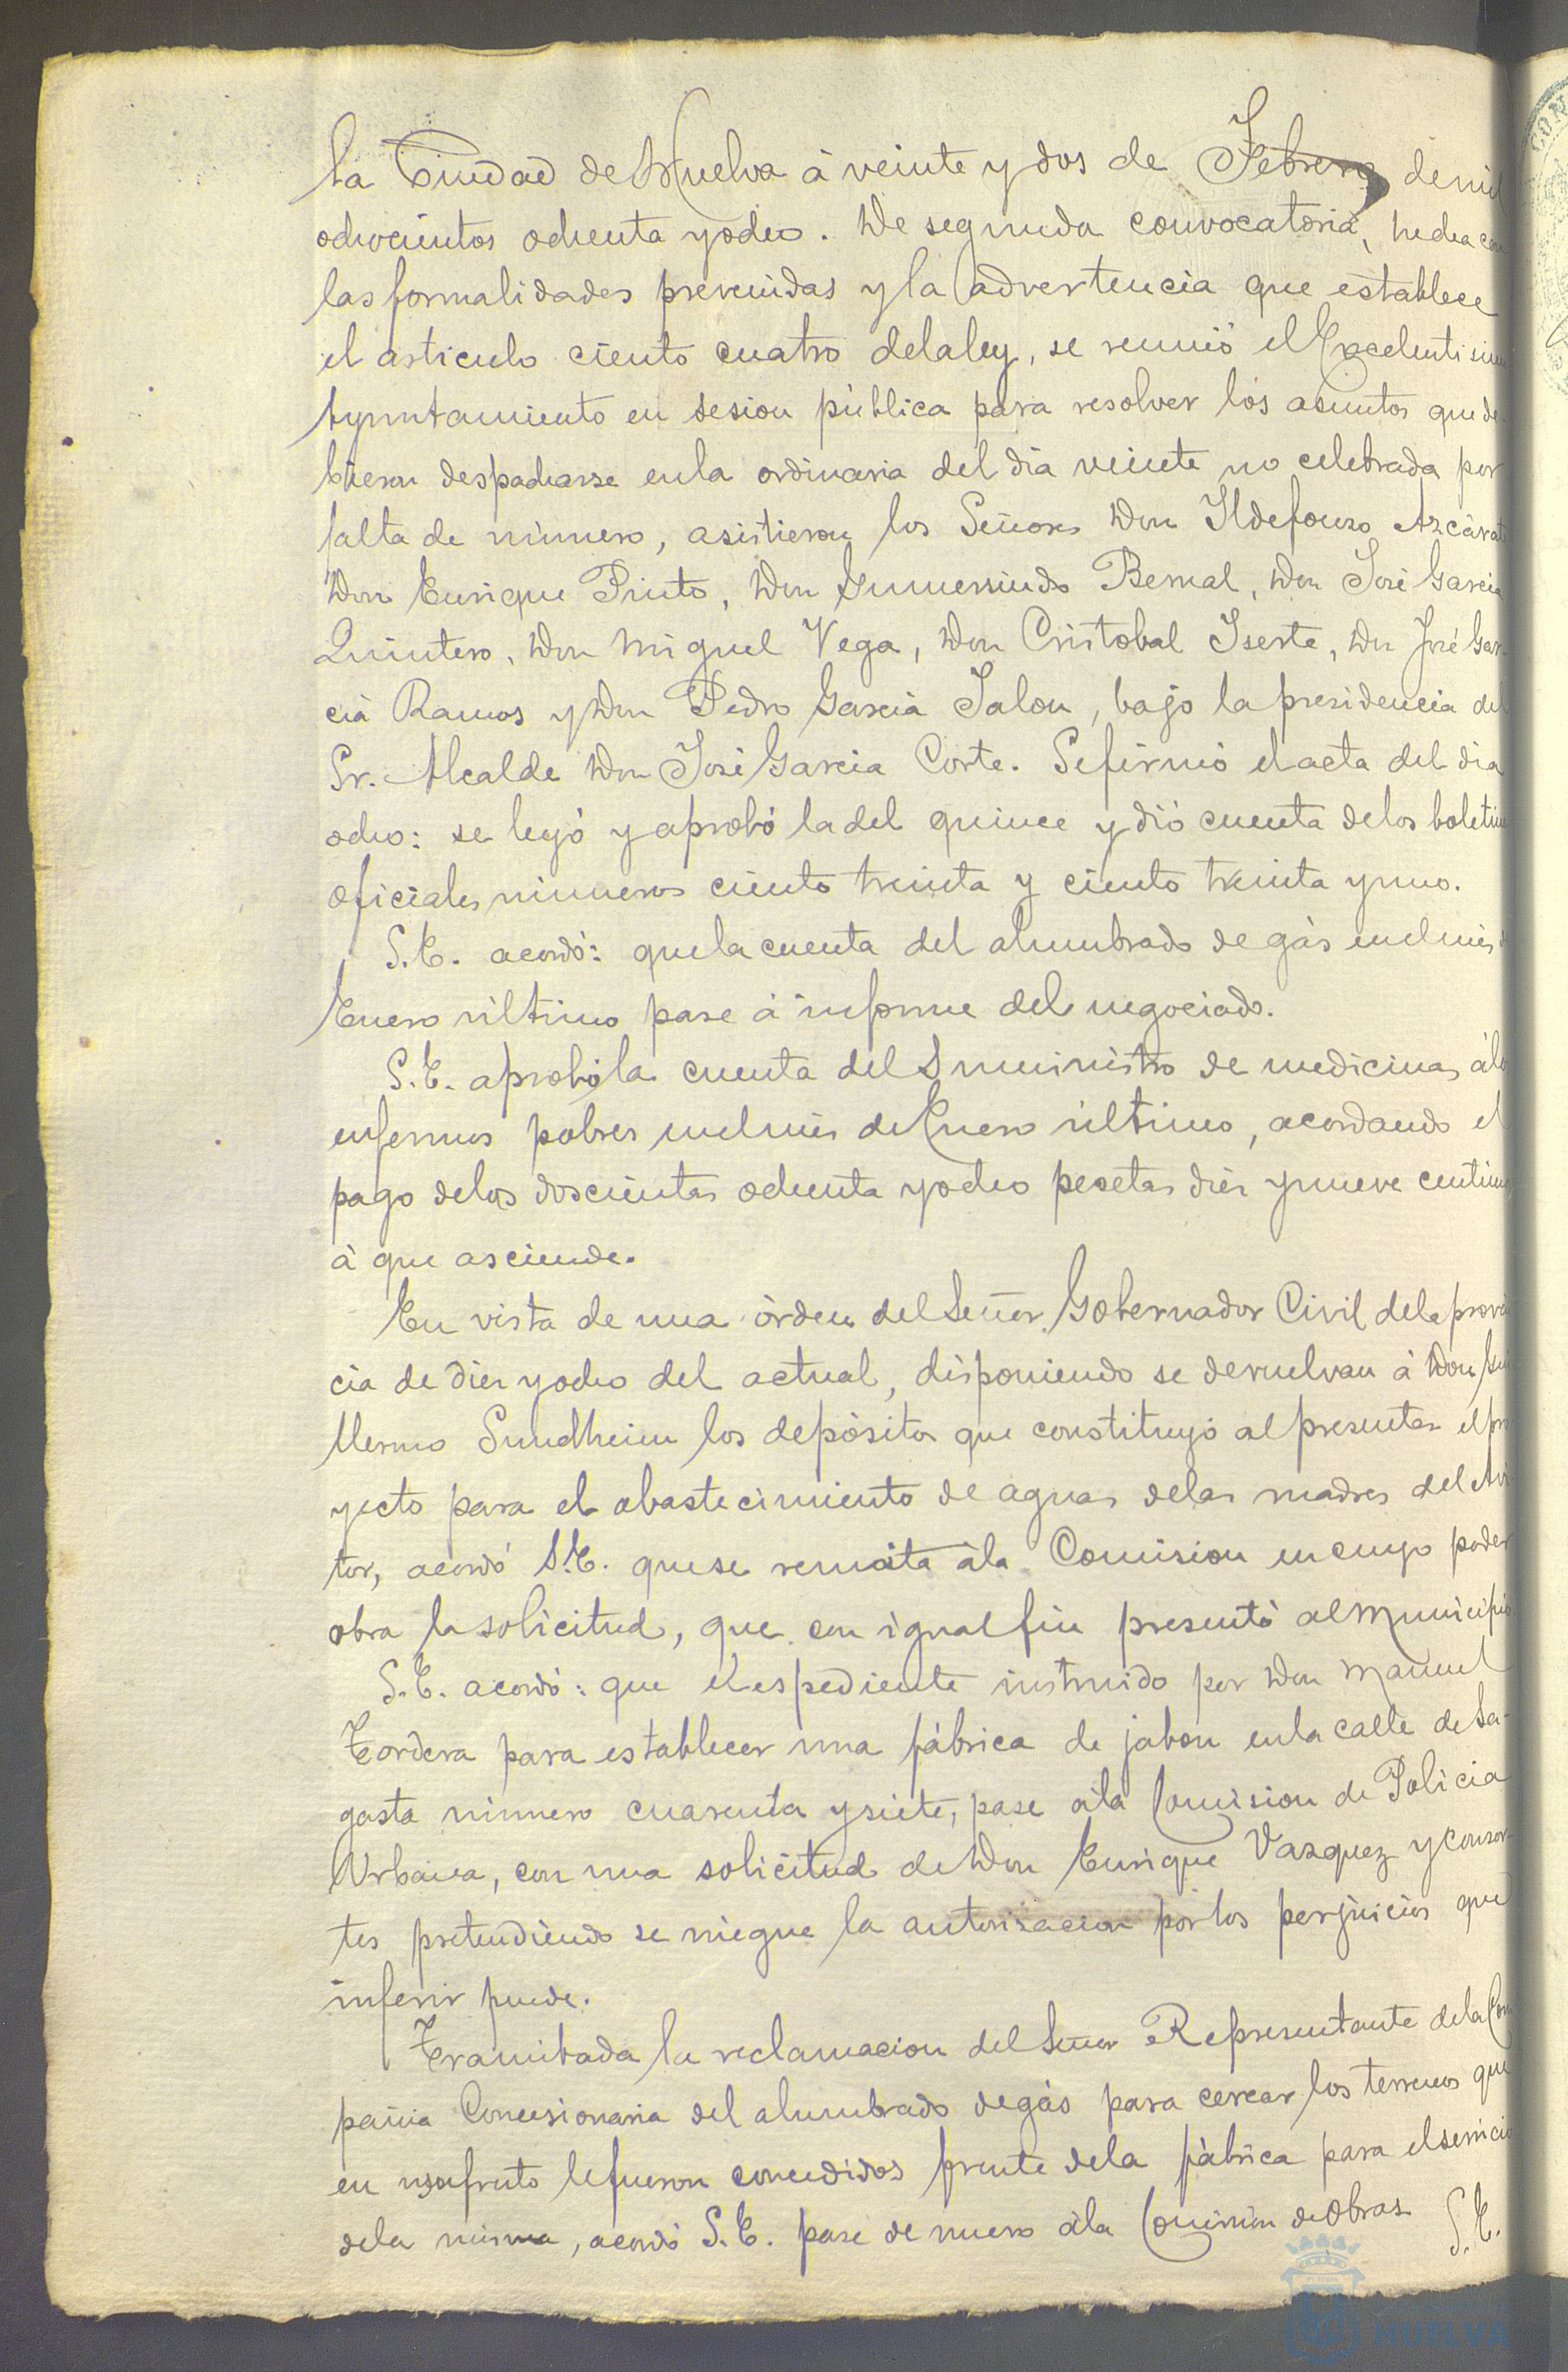 la Ciudad de Huelva á veinte y dos de Febrero de mil
ochocientos ochenta y ocho. De segunda convocatoria, hecha con
las formalidades prevenidas y la advertencia que establece
el articulo ciento cuatro de la ley, se reunió el Excelentisimo
Ayuntamiento en sesion pública para resolver los asuntos que de-
bieron despacharse en la ordinaria del dia veinte no celebrada por
falta de número, asistieron los Señores Don Ildefonso Azcárate
Don Enrique Pinto, Don Gumersindo Bernal, Don José Garcia
Quintero, Don Miguel Vega, Don Cristobal Iserte, Don José Gar-
cia Ramos y Don Pedro Garcia Jalon, bajo la presidencia del
Sr. Alcalde Don José Garcia Corte. Se firmó el acta del dia
ocho: se leyó y aprobó la del quince y dió cuenta de los boletines
oficiales números ciento treinta y ciento treinta y uno.
S.E. acordó: que la cuenta del alumbrado de gás en el mes de
Enero último pase á informe del negociado.
S.E. aprobó la cuenta del Suministro de medicinas á los
enfermos pobres en el mes de Enero último, acordando el
pago de los doscientas ochenta y ocho pesetas diez y nueve centimos
á que asciende.
En vista de una órden del Señor Gobernador Civil de la provin
cia de diez y ocho del actual, disponiendo se devuelvan á Don Gui
llermo Sundheim los depósitos que constituyó al presentar el pro
yecto para el abastecimiento de aguas de las madres del Avi
tor, acordó S.E. que se remita á la Comision en cuyo poder
obra la solicitud, que con igual fin presentó al Municipio
S.E. acordó: que el espediente instruido por Don Manuel
Tordera para establecer una fábrica de jabon en la calle de Sa-
gasta número cuarenta y siete, pase á la Comision de Policia
Urbana, con una solicitud de Don Enrique Vazquez y consor-
tes pretendiendo se niegue la autorizacion por los perjuicios que
inferir puede.
Tramitada la reclamacion del Señor Representante de la Com
pañia Concesionaria del alumbrado de gás para cercar los terrenos que
en usufruto le fueron concedidos frente de la fábrica para el servicio
de la misma, acordó S.E. pase de nuevo á la Comision de Obras S.E.
HUELVA